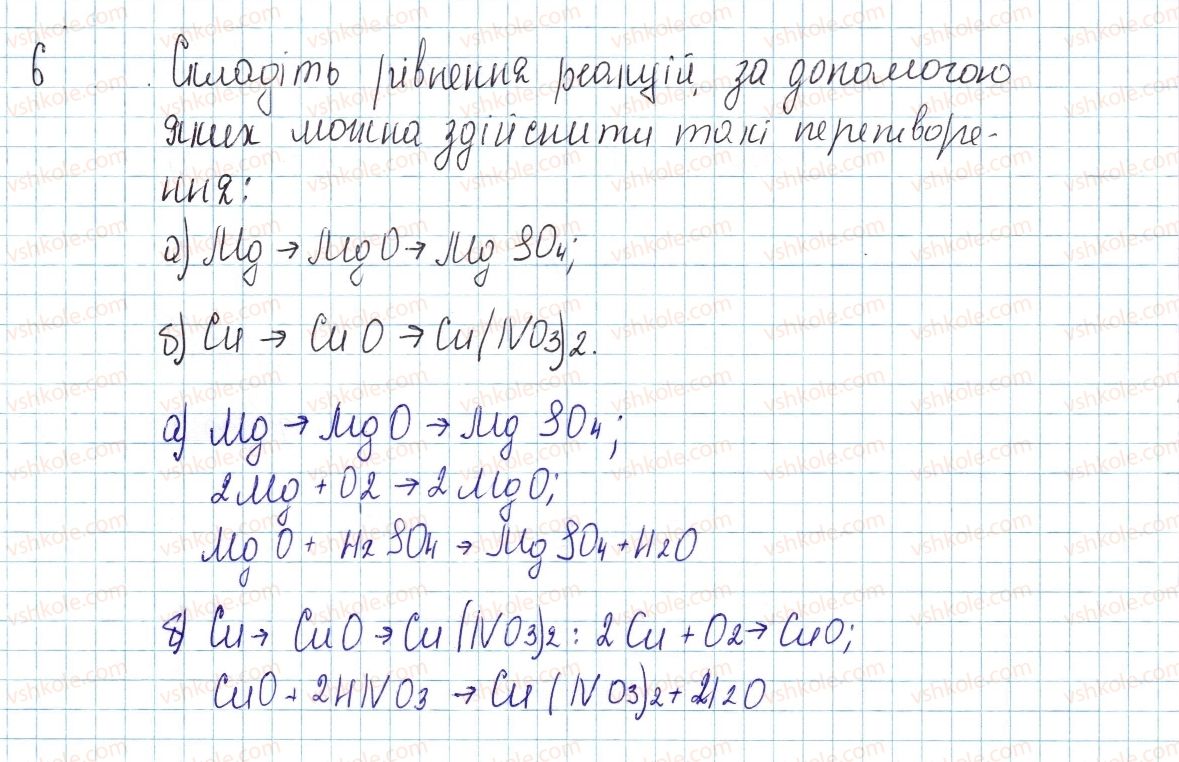 6 Складіть рівнення реакцій, за допомогою
яких можна здійснити такі перетворе-
ння:
а) Mg → MgO → MgSO4;
б) Cu → CuO → Cu(NO3)2.
а) Mg → MgO → MgSO4;
2Mg + O2 → 2MgO;
MgO + H2SO4 → MgSO4 + H2O
б) Cu → CuO → Cu(NO3)2 : 2Cu + O2 → CuO;
CuO + 2HNO3 → Cu(NO3)2 + H2O